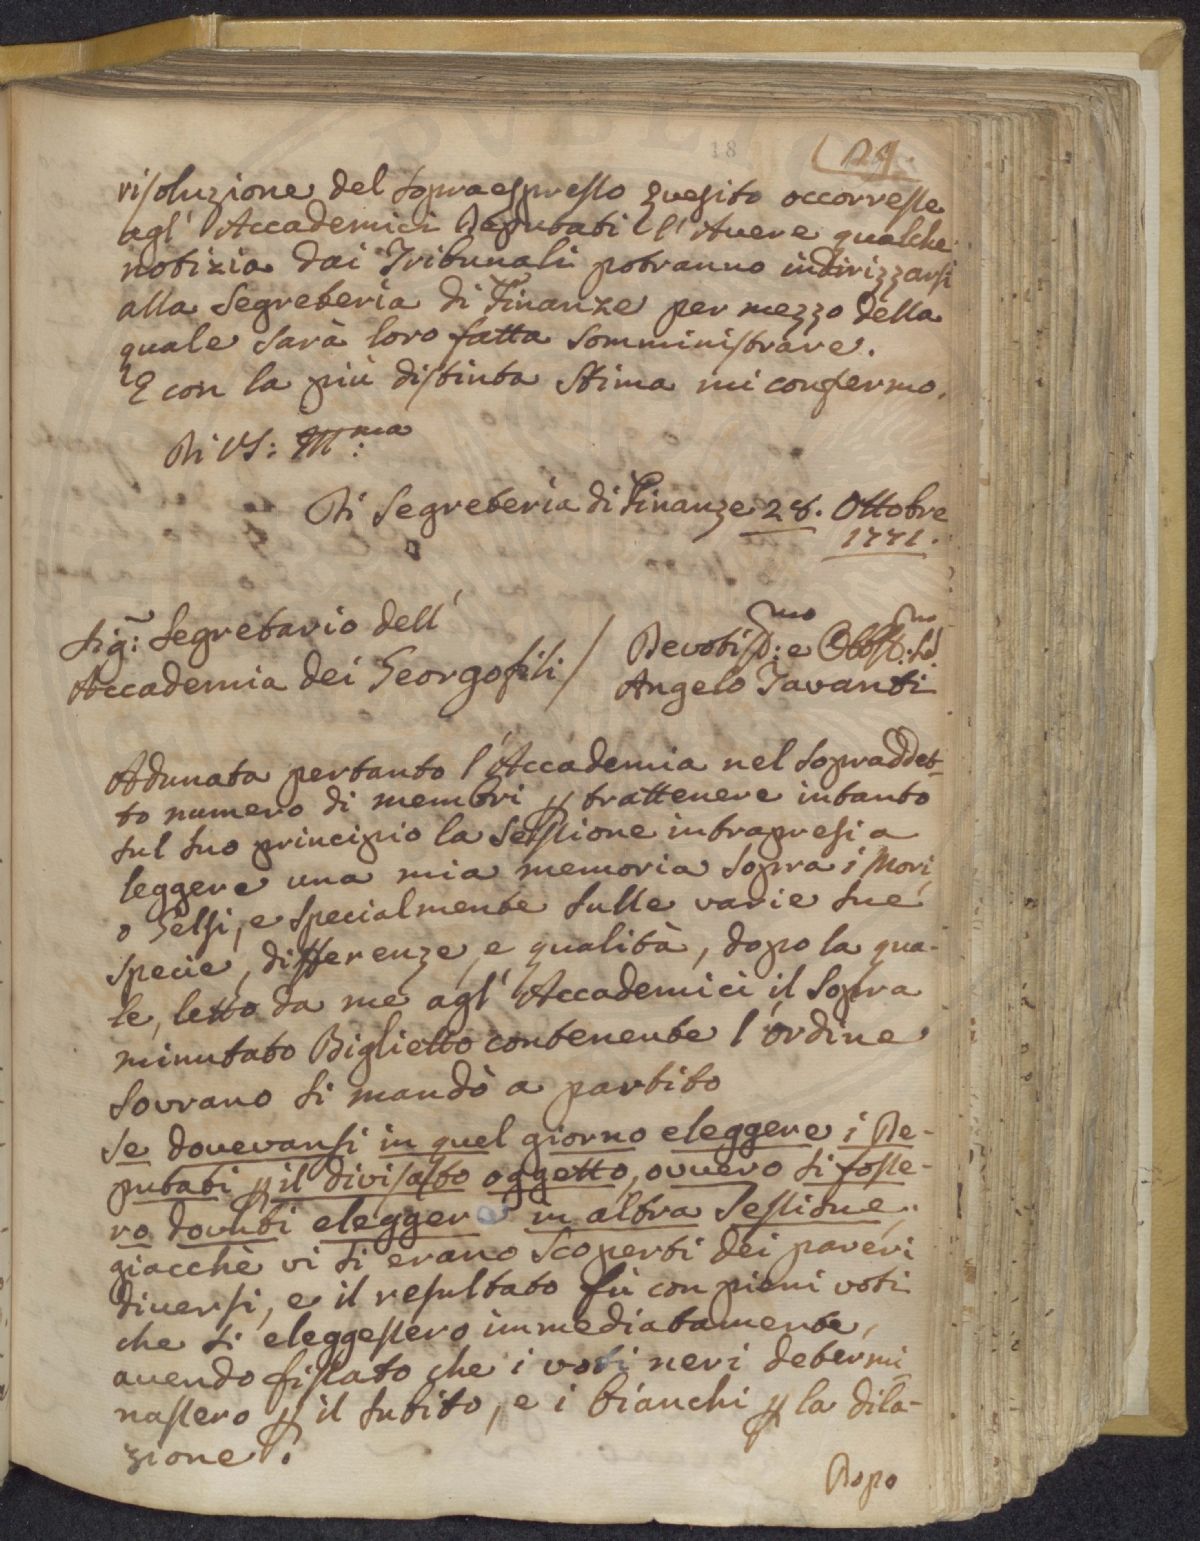 18
29.
risoluzione del sopraespresso Quesito occorresse
agl' Accademici Deputati l'Avere qualche
notizia dai Tribunali potranno indirizzarsi
alla Segreteria di Finanze per mezzo della
quale sarà loro fatta somministrare.
E con la più distinta Stima mi confermo.
Di VS: Ill:ma
Di Segreteria di Finanze 28. Ottobre
1771.
Sig: Segretario dell'
Accademia dei Georgofili /
Devotiss:mo e Obblig:mo
Angelo Tavanti
Adunata pertanto l'Accademia nel sopraddet-
to numero di membri p trattenere intanto
sul suo principio la Sessione intrapresi a
leggere una mia memoria sopra i Mori,
o Gelsi, e specialmente sulle varie sue
specie, differenze, e qualità, dopo la qua-
le, letto da me agl' Accademici il sopra
minutato Biglietto contenente l'ordine
Sovrano si mandò a partito
se dovevansi in quel giorno eleggere i De-
putati p il divisato oggetto, ovvero si fosse-
ro dovuti eleggere in altra Sessione,
giacchè vi si erano scoperti dei pareri
diversi, e il resultato fù con pieni voti
che si eleggessero immediatamente,
avendo fissato che i voti neri determi
nassero p il subito, e i bianchi p la dila-
zione.
Dopo